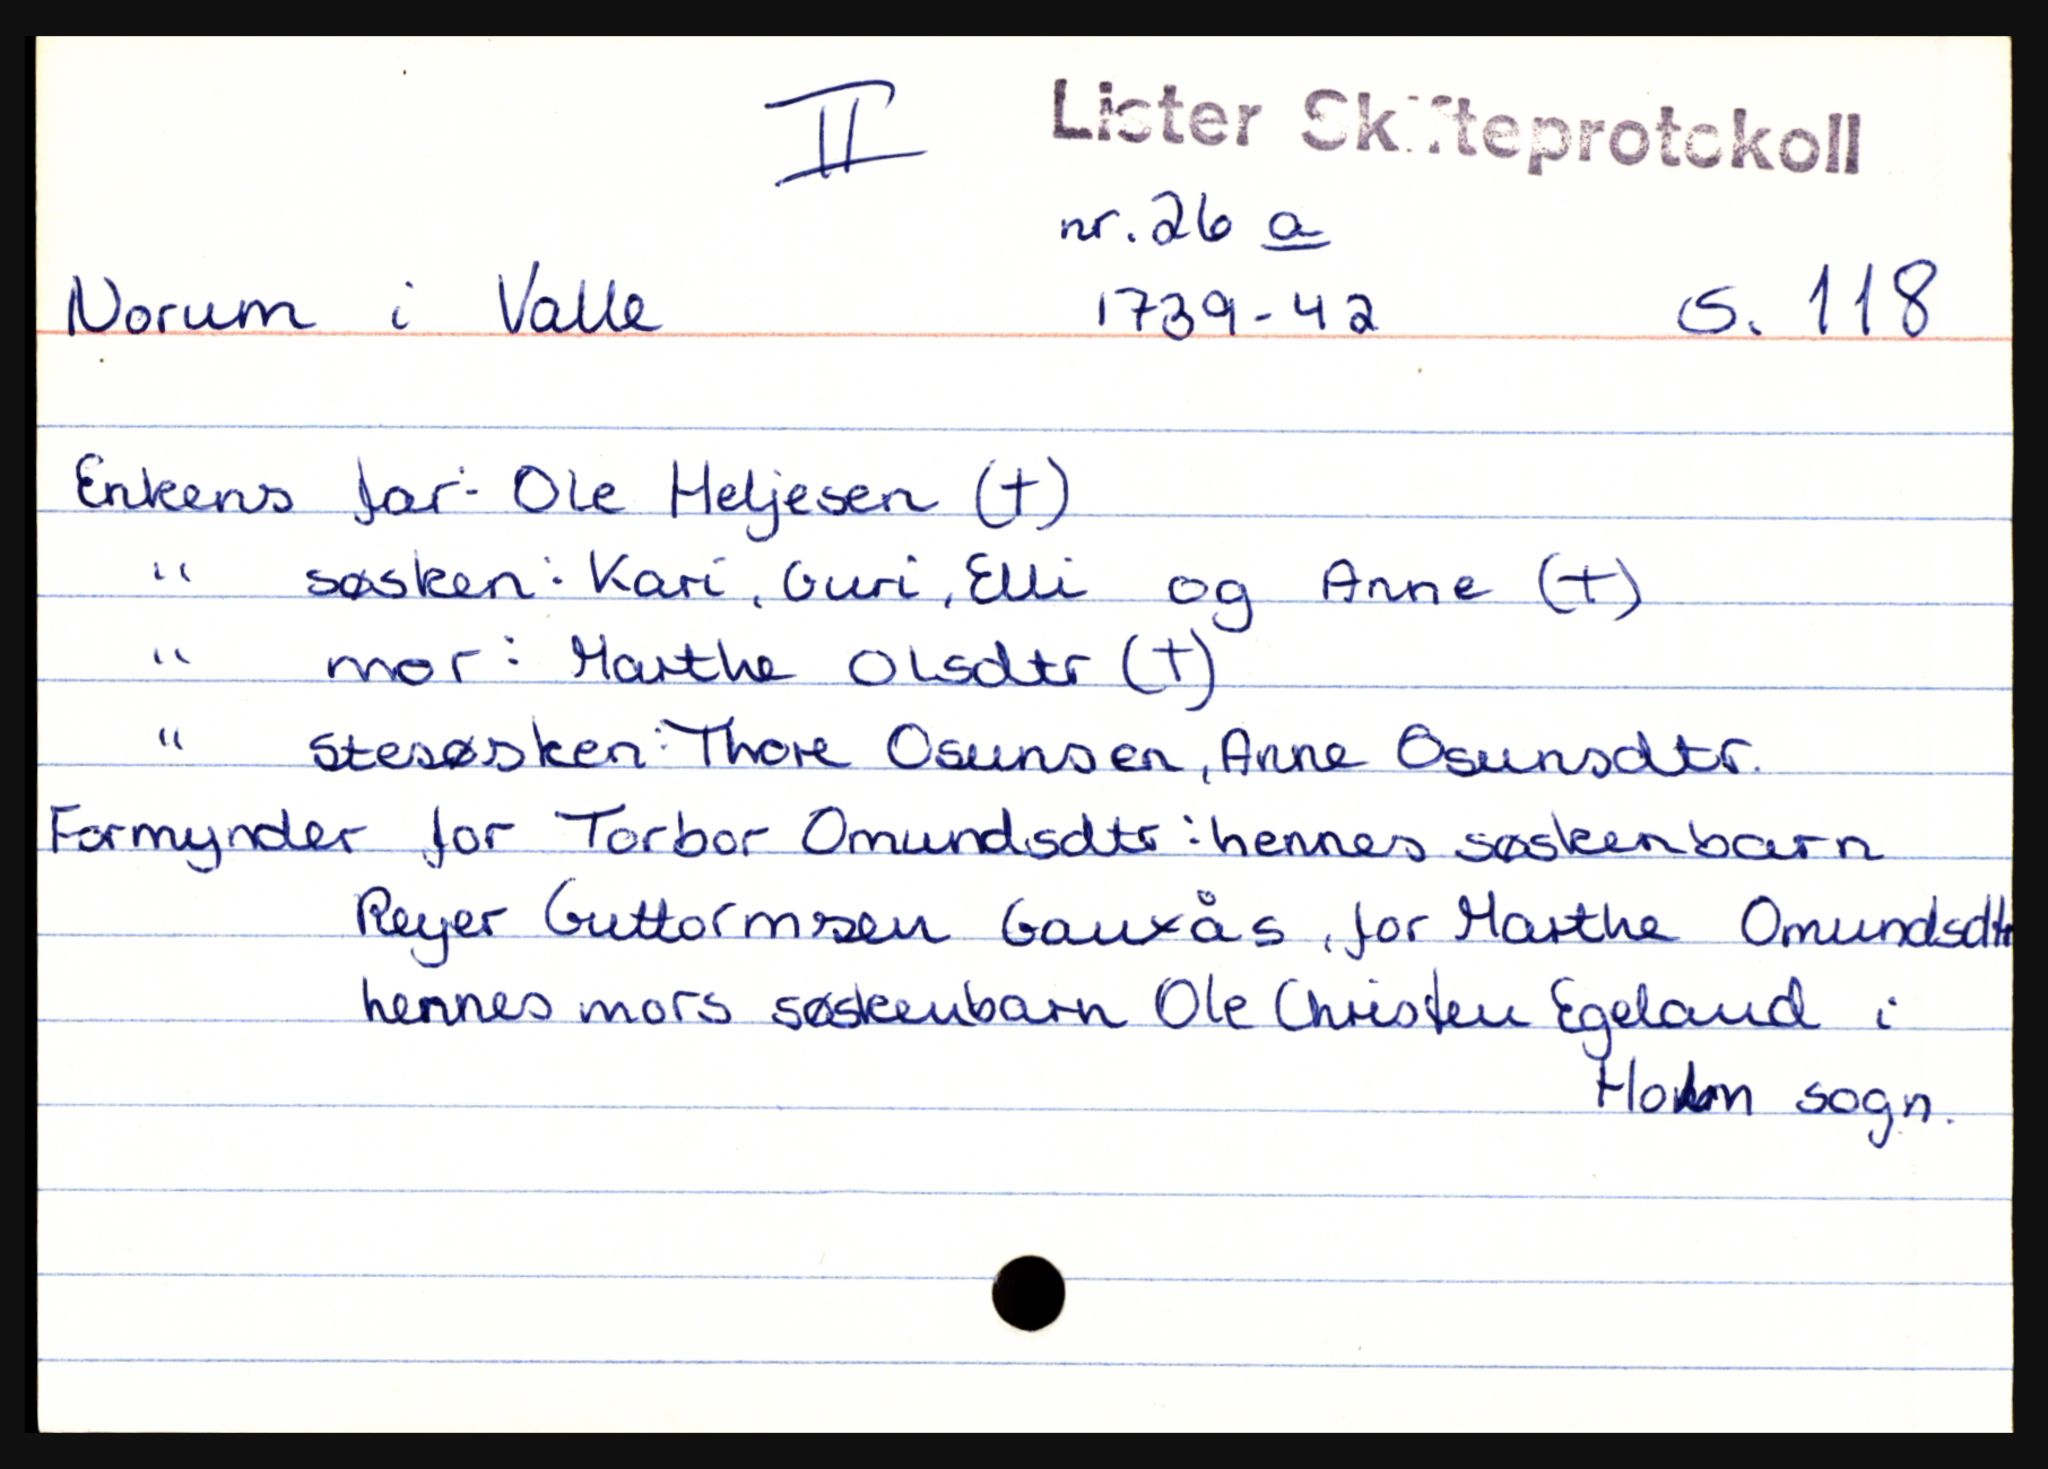 II
Lister Skifteprotokoll
nr. 26 a
Norum i Valle 1739-42 s. 118
Enkens far: Ole Heljesen (†)
" søsken: Kari, Guri, Elli og Anne (†)
" mor: Marthe Olsdtr (†)
" stesøsken: Thore Osunsen, Anne Osunsdtr.
Formynder for Torbor Omundsdtr: hennes søskenbarn
Reyer Guttormsen Gauxås, for Marthe Omundsdtr
hennes mors søskenbarn Ole Christen Egeland i
sogn.